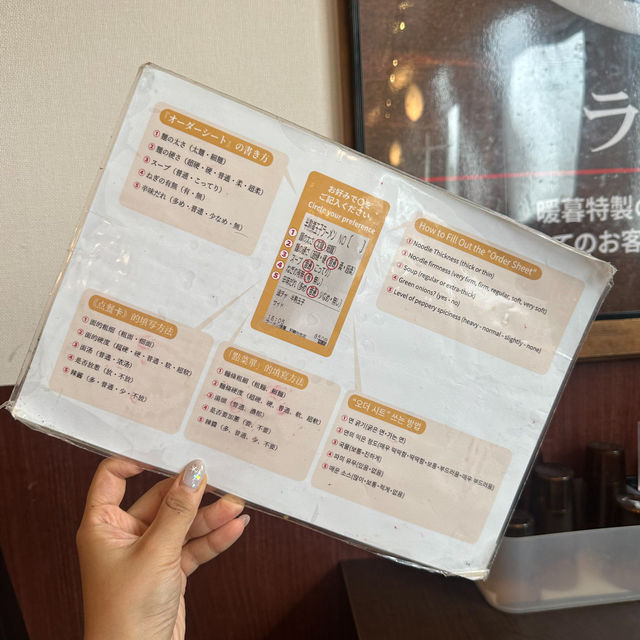 「オーダーシート」の書き方
① 麺の太さ（太麺・細麺）
② 麺の硬さ（超硬・硬・普通・柔・超柔）
③ スープ（普通・こってり）
④ ねぎの有無（有・無）
⑤ 辛味だれ（多め・普通・少なめ・無）
お好みで○を
ご記入ください。
Circle your preference
①
②
③
④
⑤
How to Fill Out the "Order Sheet"
① Noodle Thickness (thick or thin)
② Noodle firmness (very form, firm, regular, soft, very soft)
③ Soup (regular or extra-thick)
④ Green onions? (yes・no)
⑤ Level of peppery spiciness (heavy・normal・slightly・none)
《点餐卡》的填写方法
① 面的粗细（粗面・细面）
② 面的硬度（超硬・硬・普通・软・超软）
③ 面汤（普通・浓汤）
④ 是否放葱（放・不放）
⑤ 辣酱（多・普通・少・不放）
「點菜單」的填寫方法
① 麵條粗細（粗麵、細麵）
② 麵條硬度（超硬、硬、普通、軟、超軟）
③ 湯頭（普通、濃郁）
④ 是否要加蔥（要、不要）
⑤ 辣醬（多、普通、少、不要）
"오더 시트" 쓰는 방법
① 면 굵기(굵은 면・가는 면)
② 면의 익은 정도(매우 딱딱함・딱딱함・보통・부드러움・매우 부드러움)
③ 국물(보통・진하게)
④ 파의 유무(있음・없음)
⑤ 매운 소스(많이・보통・적게・없음)
ラ
暖暮特製の
てのお客